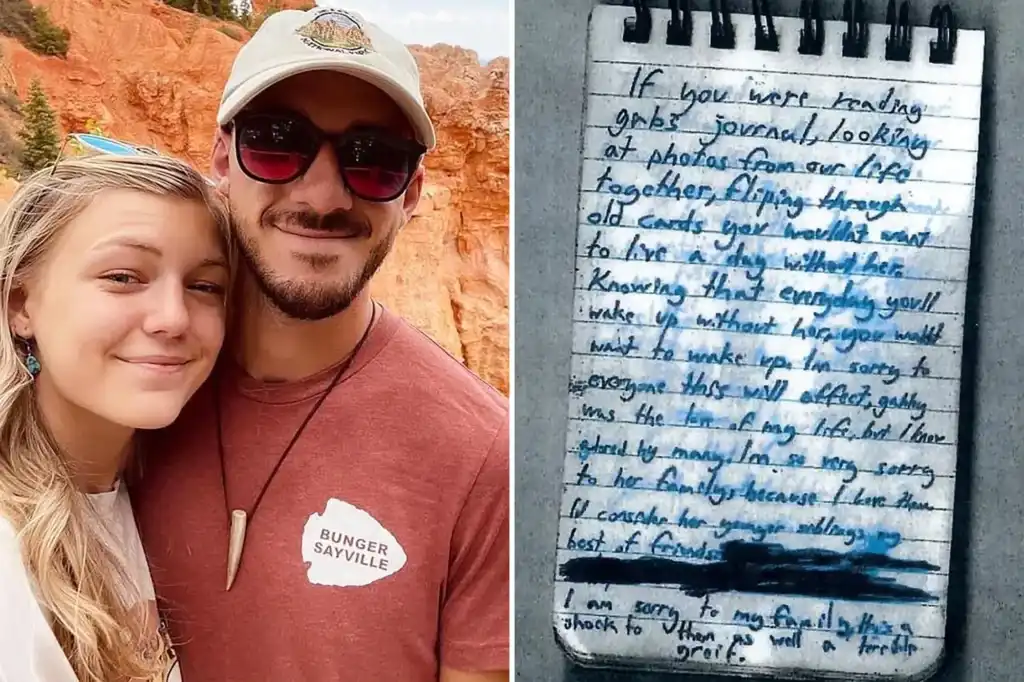 BUNGER
SAYVILLE
If you were reading
gabs journal, looking
at photos from our life
together, fliping through
old cards you wouldnt want
to live a day without her.
Knowing that everyday you'll
wake up without her, you wouldnt
want to wake up. I'm sorry to
everyone this will affect, gabby
was the love of my life, but I know
adored by many. I'm so very sorry
to her family, because I love them.
I'd consider her younger siblings my
best of friends
I am sorry to my family, this a
shock to them as well a terrible
greif.